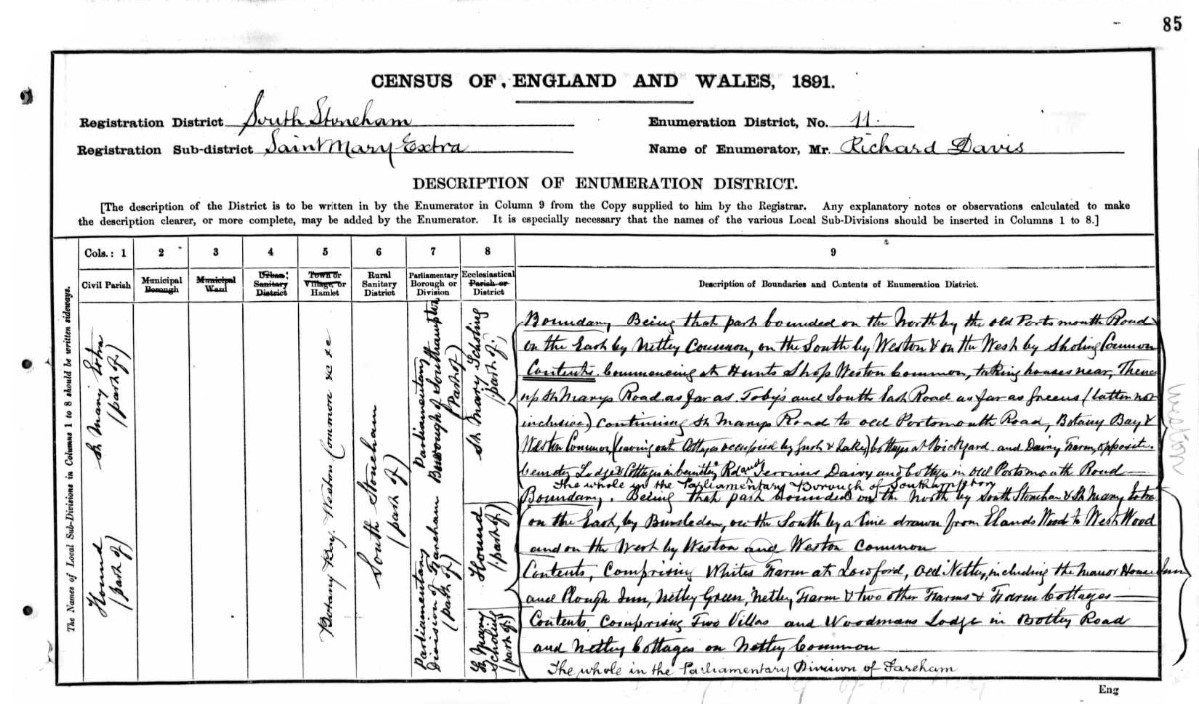 85
CENSUS OF ENGLAND AND WALES, 1891.
Registration District South Stoneham
Enumeration District, No. 11.
Registration Sub-district Saint Mary Extra
Name of Enumerator, Mr. Richard Davis
DESCRIPTION OF ENUMERATION DISTRICT.
[The description of the District is to be written in by the Enumerator in Column 9 from the Copy supplied to him by the Registrar. Any explanatory notes or observations calculated to make
the description clearer, or more complete, may be added by the Enumerator. It is especially necessary that the names of the various Local Sub-Divisions should be inserted in Columns 1 to 8.]
The Names of Local Sub-Divisions in Columns 1 to 8 should be written sideways.
Cols.: 1 2 3 4 5 6 7 8 9
Civil Parish
Municipal Borough
Municipal Ward
Urban Sanitary District
Town or Village, or Hamlet
Rural Sanitary District
Parliamentary Borough or Division
Ecclesiastical Parish or District
Description of Boundaries and Contents of Enumeration District.
St Mary Extra
(part of)
Hound
(part of)
Botany Bay, Weston Common &c &c
South Stoneham
(part of)
Parliamentary
Borough of Southampton
(Part of)
Parliamentary
Division of Fareham
(part of)
St Mary Scholing
(part of)
Hound
(part of)
St Mary
Scholing
(part of)
Boundary Being that part bounded on the North by the old Portsmouth Road
on the East by Netley Common, on the South by Weston & on the West by Sholing Common
Contents. Commencing at Hunts Shop Weston Common, taking houses near, Thence
up St Marys Road as far as Toby's and South East Road as far as Greens (latter not
inclusive) Continuing St Marys Road to old Portsmouth Road, Botany Bay &
Weston Common (leaving out Cottages occupied by &) Cottages at Rickyard and Dairy Farm, opposite
Cemetery Lodge & Cottages in Cemetery Rd and Dairy and Cottages in old Portsmouth Road
The whole in the Parliamentary Borough of Southampton
Boundary. Being that part bounded on the North by South Stoneham & St Mary Extra
on the East, by Bursledon, on the South by a line drawn from Elands Wood to West Wood
and on the West by Weston and Weston Common
Contents, Comprising Whites Farm at Lowford, Old Netley, including the Manor House Inn
and Plough Inn, Netley Green, Netley Farm & two other Farms & Farm Cottages
Contents, Comprising Two Villas and Woodmans Lodge in Botley Road
and Netley Cottages on Netley Common
The whole in the Parliamentary Division of Fareham
Weston
Eng